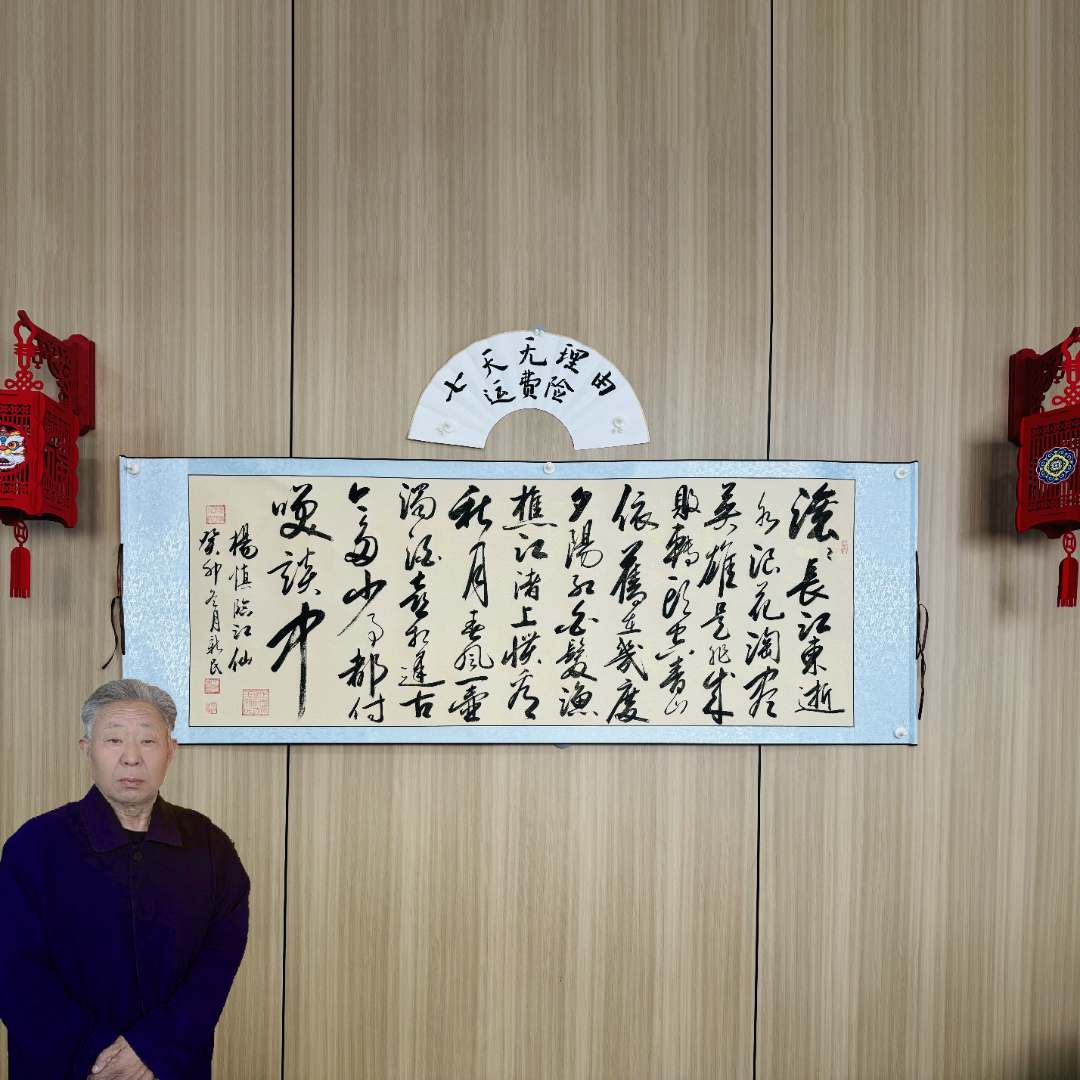 七天无理由
运费险
滚々長江東逝
水浪花淘盡
英雄是非成
敗轉頭空青山
依舊在幾度
夕陽紅白髮漁
樵江渚上慣看
秋月春風一壺
濁酒喜相逢古
今多少事都付
咲談中
楊慎臨江仙
癸卯冬月新民